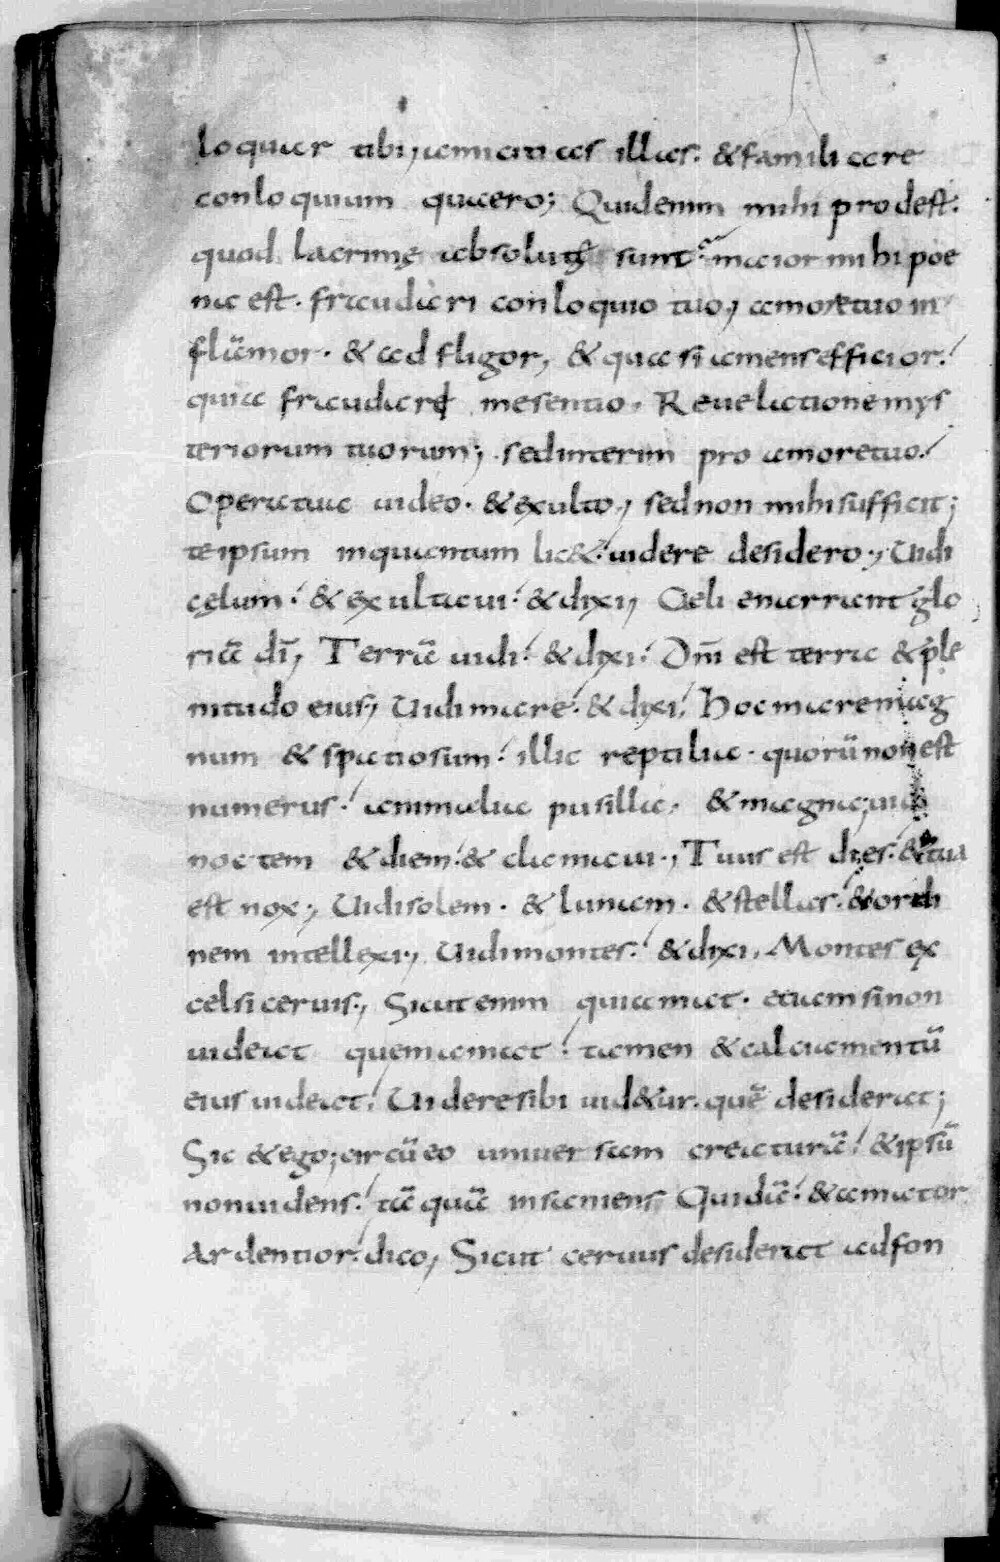 loquar tibi, amicitias illas. &familiare
conloquium quaero; Quidenim mihi prodest.
quod lacrimę absolutę sunt. maior mihi poe
na est. fraudari conloquio tuo, amoretuo in
flāmor. & adfligor, & quasi amens efficior.
quia fraudare mesentio. Reuelationemys
teriorum tuorum; sedinterim pro amoretuo.
Operatua uideo. &exulto, sednon mihisufficit;
teipsum inquantum lic&. uidere desidero; Uidi
cęlum. &exultaui. &dixi, Celi enarrant glo
riā dī, Terrā uidi. &dixi. Dnī est terra &ple
nitudo eius, Uidimare. &dixi. Hocmaremag
num &spatiosum. illic reptilia. quorū nonest
numerus. animalia pusilla. &magna; uidi
noctem &diem. & clamaui., Tuus est dies. &tua
est nox; Uidisolem. & lunam. &stellas. &ordi
nem intellexi, Uidimontes. &dixi, Montes ex
celsiceruis., Sicutenim quiamat. etiamsinon
uideat quemamat. tamen &calciamentū
eius uideat. Uideresibi uid&ur. quē desiderat;
Sic &ego; circūeo uniuersam creaturā. &ipsū
nonuidens. tāquā insaniens, Quidā. &amator
Ardentior. dico, Sicut ceruus desiderat adfon